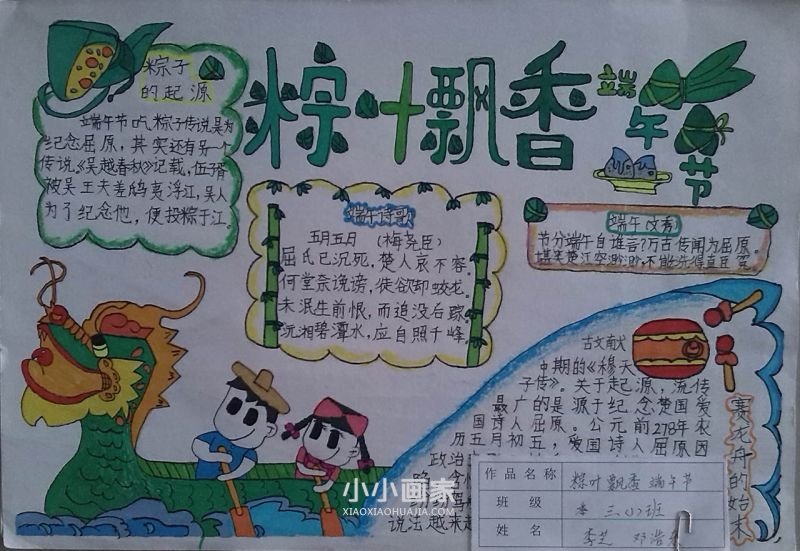 粽叶飘香
端午节
粽子
的起源
端午节吃粽子传说是为
纪念屈原，其实还有另一个
传说《吴越春秋》记载，伍子胥
被吴王夫差鸱夷浮江，吴人
为了纪念他，便投粽于江。
端午诗歌
五月五日 （梅尧臣）
屈氏已沉死，楚人哀不容。
何尝奈谗谤，徒欲却蛟龙。
未泯生前恨，而追没后踪。
沅湘碧潭水，应自照千峰。
端午
节分端午自谁言？万古传闻为屈原。
堪笑楚江空渺渺，不能洗得直臣冤。
赛龙舟的始末
古文献
中期的《穆天
子传》。关于起源，流传
最广的是源于纪念楚国爱
国诗人屈原。公元前278年农
历五月初五，爱国诗人屈原因
政治
说法越来越
作品名称 粽叶飘香 端午节
班级 三（1）班
姓名 李芝 邓浩
小小画家
XIAOXIAOHUAJIA.COM